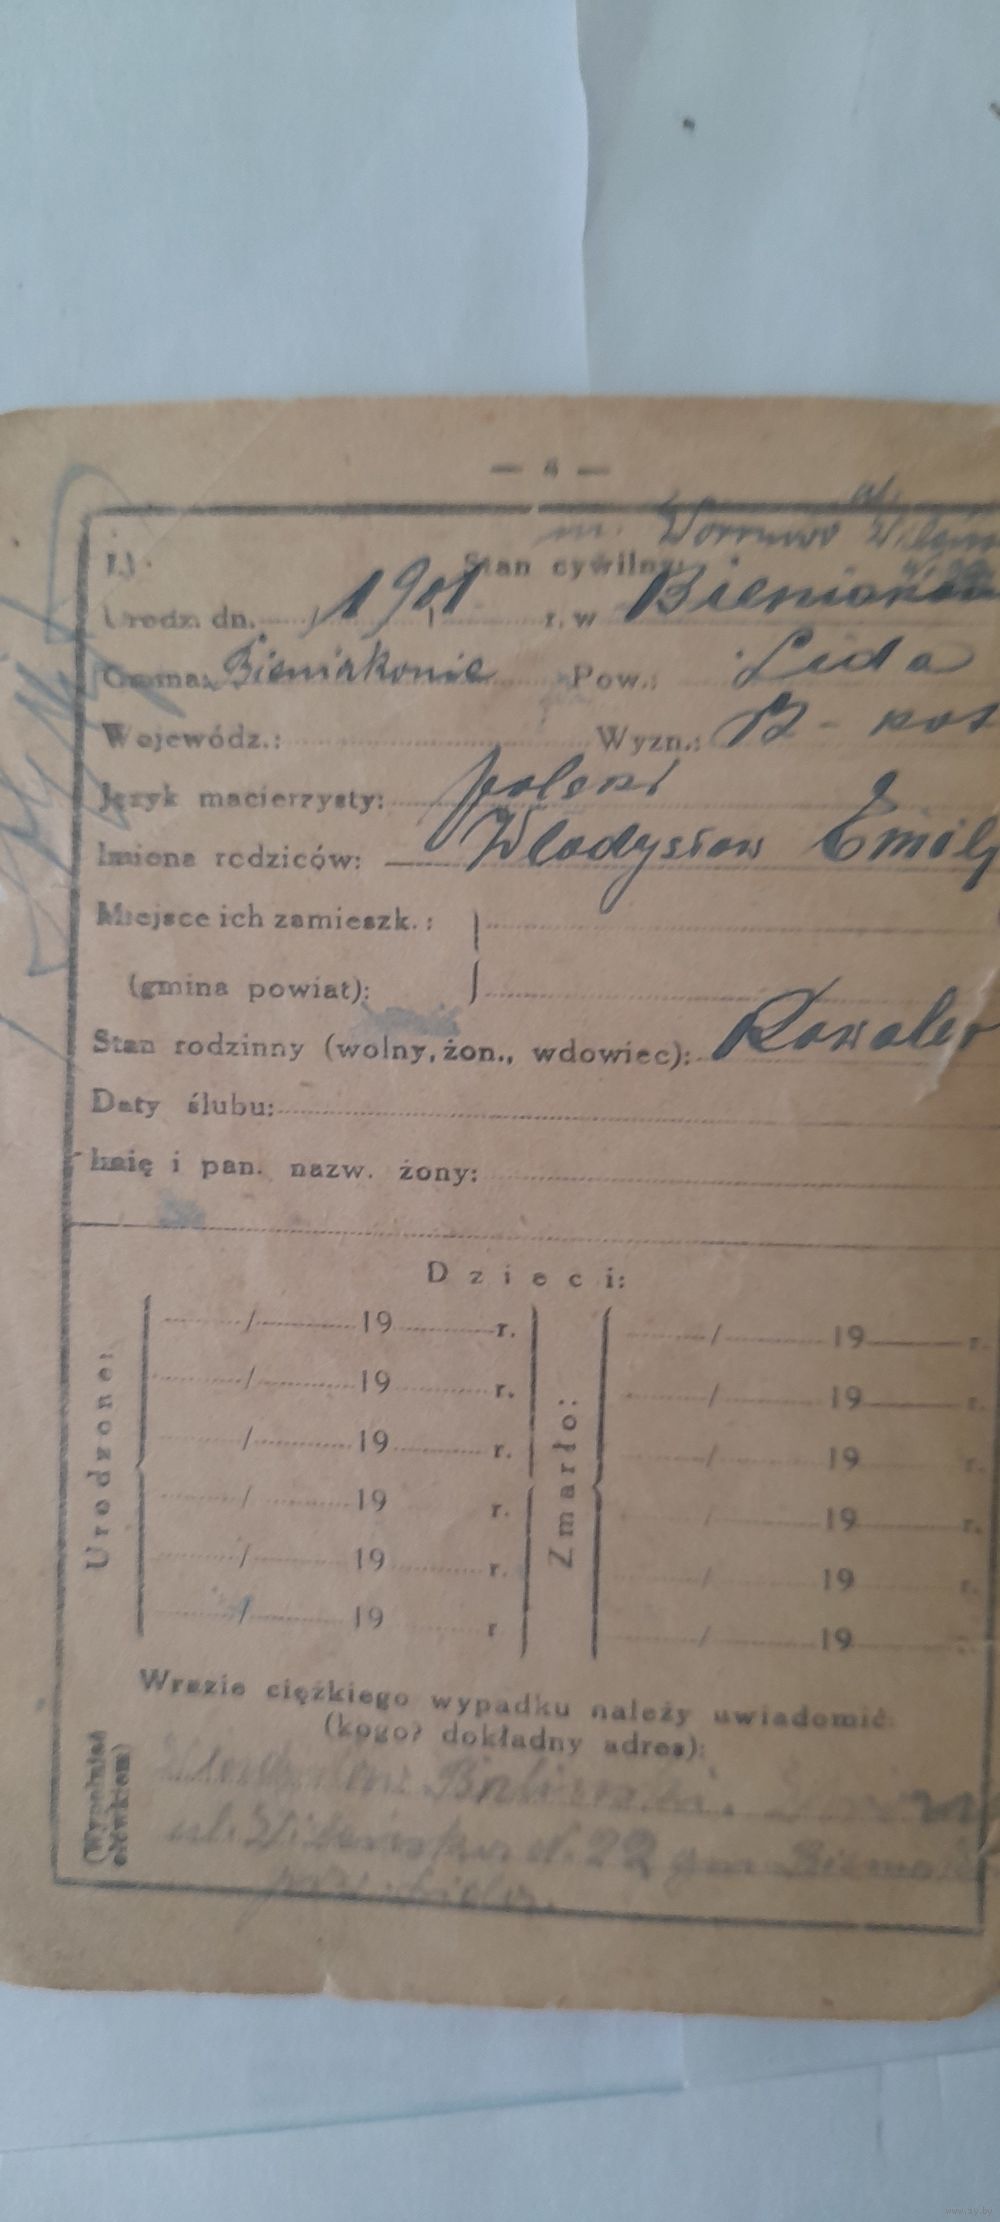 — 4 —
m. Wornuwo
I.) Stan cywilny:
Urodz. dn. / 1901 r. w
Gmina: Bieniakonie Pow.: Lida
Wojewódz.: Wyzn.: R - kat
Język macierzysty: polski
Imiona rodziców: Wladyslaw Emilj
Miejsce ich zamieszk.:
(gmina powiat):
Stan rodzinny (wolny, żon., wdowiec): Kawaler
Daty ślubu:
Imię i pan. nazw. żony:
Dzieci:
Urodzone:
/ 19 r.
/ 19 r.
/ 19 r.
/ 19 r.
/ 19 r.
/ 19 r
Zmarło:
/ 19 r.
/ 19 r.
/ 19 r.
/ 19 r.
/ 19 r.
/ 19 r.
W razie ciężkiego wypadku należy uwiadomić
(kogo? dokładny adres):
(Wypełniać ołówkiem)
ul. Wileńska d. 22 gm.
pow. Lida
www.ay.by